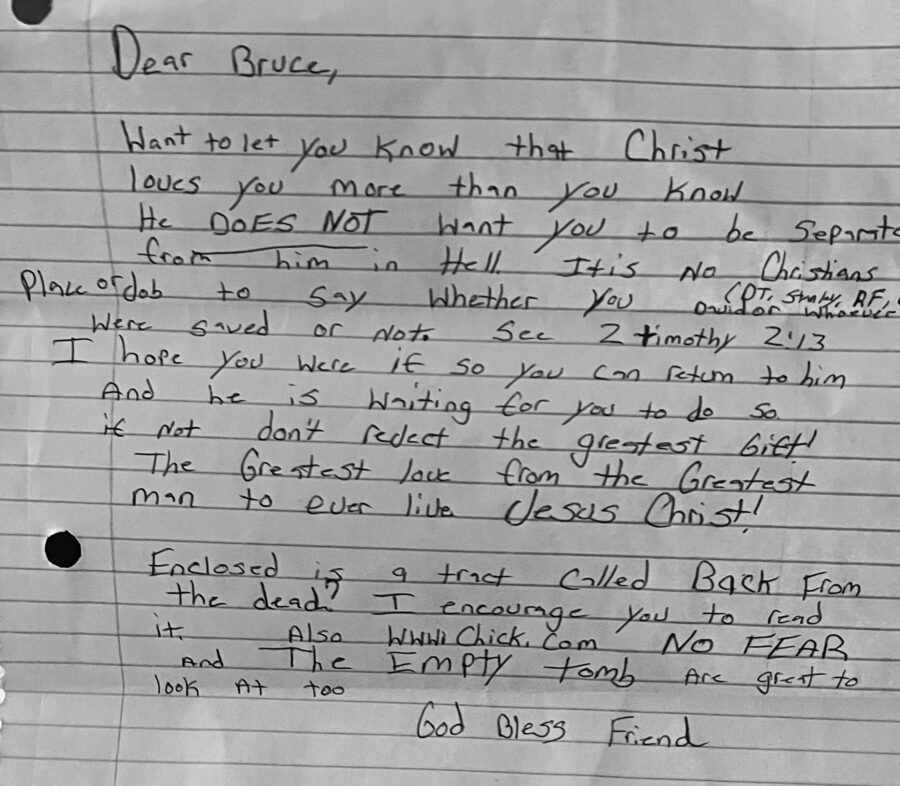 Dear Bruce,
Want to let you know that Christ
loves you more than you know
He DOES NOT want you to be Separate
from him in Hell. It is No Christians
Place or Job to say whether you (PT, RF,
or whoever
were saved or not. See 2 timothy 2:13
I hope you were if so you can return to him
And he is waiting for you to do so
if not don't redect the greatest Gift!
The Greatest love from the Greatest
man to ever live Jesus Christ!
Enclosed is a tract called Back From
the dead? I encourage you to read
it. Also www.Chick.Com NO FEAR
And The Empty tomb Are great to
look At too
God Bless Friend